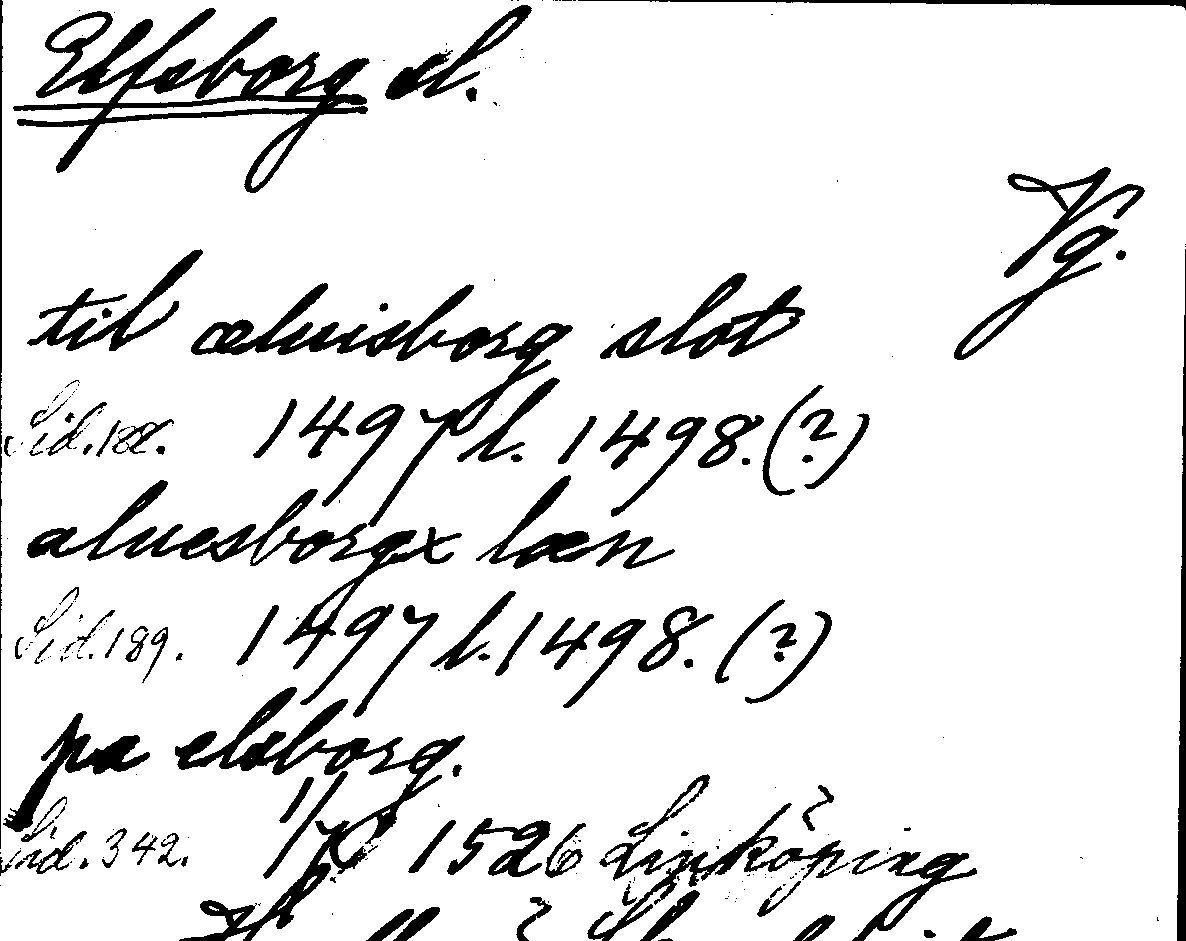 Elfsborg sl.
Vg.
til æluisborg slot
Sid. 188. 1497 l. 1498. (?)
aluesborgx læn
Sid. 189. 1497 l. 1498. (?)
pa elsborg.
Sid. 342. 1526 Linköping